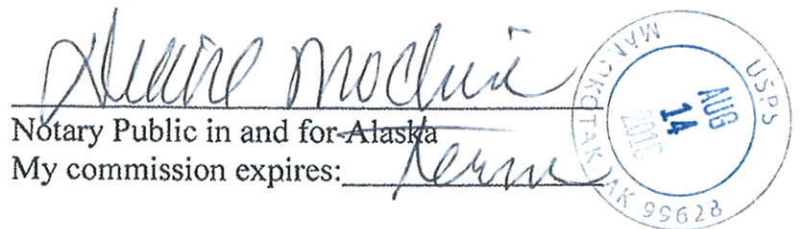 Notary Public in and for Alaska
My commission expires: Term
USPS
MANOKOTAK AK 99628
AUG
14